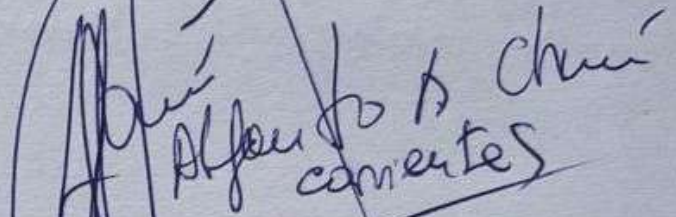 Alfonso A Chuí
corrientes